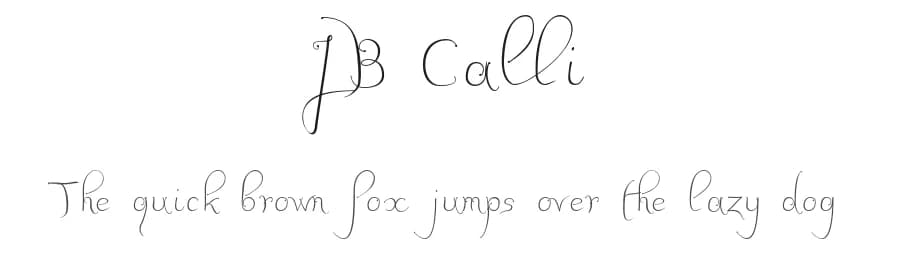 DB Calli
The quick brown fox jumps over the lazy dog